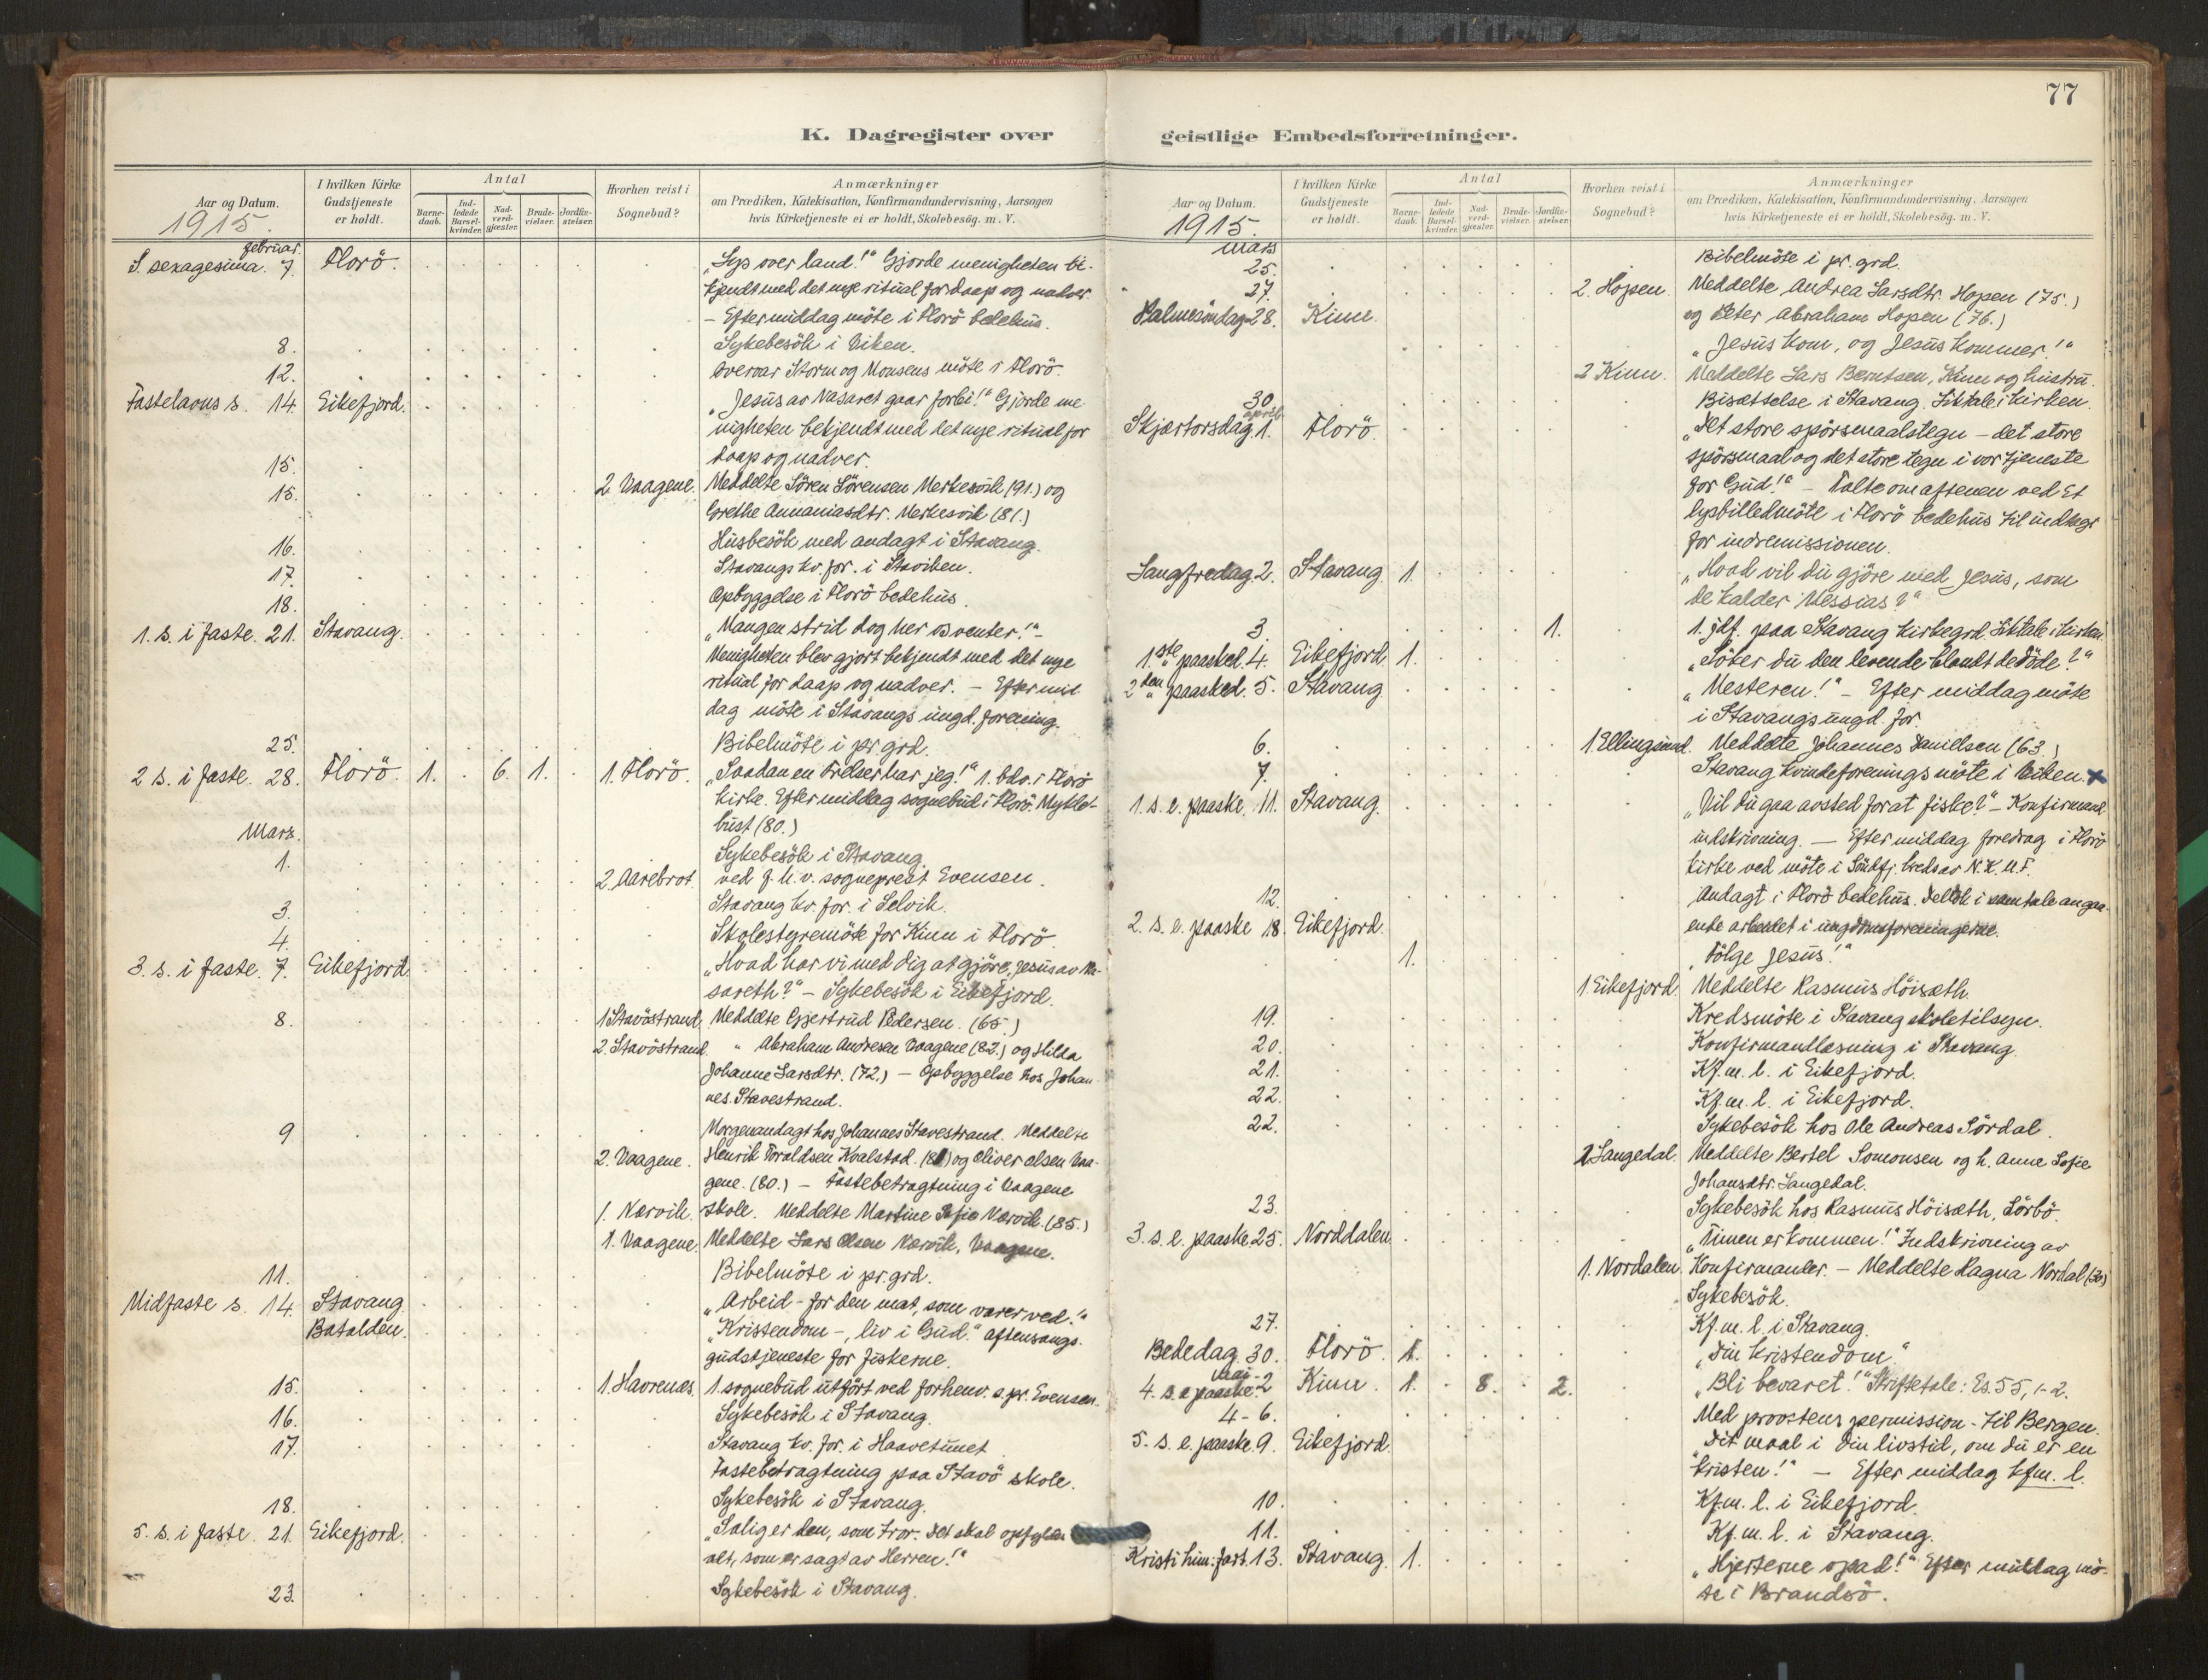 77
K. Dagregister over
Aar og Datum.
1915.
I hvilken Kirke Gudstjeneste er holdt.
Antal
Barnedaab.
Indledede Barselkvinder.
Nadverdgjæster.
Brudevielser.
Jordfæstelser.
Hvorhen reist i Sognebud?
Anmærkninger
om Prædiken, Katekisation, Konfirmandundervisning, Aarsagen
hvis Kirketjeneste ei er holdt, Skolebesög. m. V.
februar.
S. sexagesima. 7. Florö. „Lys over land!“ Gjorde menigheten be-
kjendt med det nye ritual for daap og nadver.
– Eftermiddag möte i Florö bedehus.
8. Sykebesök i Viken.
12. Overvar Storm og Monsens möte i Florö.
Fastelavns s. 14 Eikefjord. „Jesus av Nasaret gaar forbi!“ Gjorde me
nigheten bekjendt med det nye ritual for
daap og nadver.
15.
15. 2. Vaagene. Meddelte Sören Sörensen Merkesvik (91.) og
Grethe Annaniasdtr. Merkesvik (81.)
16. Husbesök med andagt i Stavang.
17. Stavangs kv. for. i Staviken.
18. Opbyggelse i Florö bedehus.
1. s. i faste. 21. Stavang. „Mangen strid dog her os venter!“ –
Menigheten blev gjort bekjendt med det nye
ritual for daap og nadver. – Eftermid
dag möte i Stavangs ungd. forening.
25. Bibelmöte i pr. grd.
2 s. i faste. 28. Florö. 1. 6. 1. 1. Florö. „Saadan en Frelser har jeg!“ 1. bdv. i Florö
kirke. Eftermiddag sognebud i Florö. Myklebust (80.)
Marz.
1. Sykebesök i Stavang.
2. Aarebrot. ved f. h. v. sogneprest Evensen.
3. Stavang kv. for. i Selvik.
4. Skolestyremöte for Kinn i Florö
3. s. i faste. 7. Eikefjord. „Hvad har vi med dig at gjöre, Jesus av Na-
sareth?“ – Sykebesök i Eikefjord.
8. 1 Stavöstrand. Meddelte Gjertrud Pedersen. (65.)
2. Stavöstrand. „ Abraham Andresen Vaagene (82.) og Hilda
Johanne Larsdtr. (72.) – Opbyggelse hos Johan
nes. Stavestrand.
9 Morgenandagt hos Johannes Stavestrand. Meddelte
2. Vaagene. Henrik Toraldsen Kvalstad. og Oliver Olsen Vaa-
gene. (80.) – Fastebetragtning i Vaagene
1. Nærvik. skole. Meddelte Martine Sofie Nærvik. (85.)
1. Vaagene. Meddelte Lars Olsen Nærvik, Vaagene.
11. Bibelmöte i pr. grd.
Midfaste s. 14 Stavang. „Arbeid – for den mat, som varer ved!“
Batalden. „Kristendom –, liv i Gud.“ Aftensangs.
gudstjeneste for fiskerne.
15. 1. Havrenæs. 1. sognebud utfört ved forhenv. s. pr. Evensen.
16. Sykebesök i Stavang.
17. Stavang kv. for. i Haavetunet
Fastebetragtning paa Stavö skole.
18. Sykebesök i Stavang.
5. s. i faste. 21. Eikefjord. „Salig er den, som tror. Det skal opfyldes
alt, som er sagt av Herren!“
23. Sykebesök i Stavang.
geistlige Embedsforretninger.
Aar og Datum.
1915.
I hvilken Kirke Gudstjeneste er holdt.
Antal
Barnedaab.
Indledede Barselkvinder.
Nadverdgjæster.
Brudevielser.
Jordfæstelser.
Hvorhen reist i Sognebud?
Anmærkninger
om Prædiken, Katekisation, Konfirmandundervisning, Aarsagen
hvis Kirketjeneste ei er holdt, Skolebesög. m. V.
mars
25. Bibelmöte i pr. grd.
27. 2. Hopen. Meddelte Andrea Larsdtr. Hopen (75.)
og Peter Abraham Hopen (76.)
Palmesöndag 28. Kinn. „Jesus kom, og Jesus kommer!“
2 Kinn. Meddelte Lars Berntsen, Kinn og hustru.
30. Bisættelse i Stavang. Liktale i kirken.
april
Skjærtorsdag 1. Florö. „Det store spörsmaalstegn – det store
spörsmaal og det store tegn i vor tjeneste
for Gud!“ – Talte om aftenen ved et
lysbilledmöte i Florö bedehus til indtægt
for indremissionen.
Langfredag 2. Stavang 1. „Hvad vil du gjöre med Jesus, som
de kalder Messias?“
3. 1. 1. jdf. paa Stavang kirkegrd. Liktale i kirken.
1.ste paasked. 4. Eikefjord. 1. „Söker du den levende blandt de döde?“
2den paasked. 5. Stavang „Mesteren!“ – Eftermiddag möte
i Stavangs ungd. for
6. 1. Ellingsund. Meddelte Johannes Danielsen (63.)
7. Stavang kvindeforenings möte i Viken.
1. s. e. paaske. 11. Stavang. „Vil du gaa avsted for at fiske?“ – Konfirmand
indskrivning. – Eftermiddag foredrag i Florö
kirke ved möte i Söndfj. kreds av N. K. U. F.
12. Andagt i Florö bedehus. Deltok i samtale angaa-
ende arbeidet i ungdomsforeningerne.
2. s. e. paaske 18. Eikefjord. 1. „Fölge Jesus!“
1 Eikefjord. Meddelte Rasmus Höisæth.
19. Kredsmöte i Stavang skoletilsyn.
20. Konfirmandlæsning i Stavang.
21. Kf. m. l. i Eikefjord.
22. Kf. m. l. i Eikefjord.
22. Sykebesök hos Ole Andreas Sördal.
2 Langedal. Meddelte Bertel Simonsen og h. Anne Sofie
Johansdtr. Langedal.
23. Sykebesök hos Rasmus Höisæth, Sörbö.
3. s. e. paaske. 25. Norddalen. „Timen er kommen!“ Indskrivning av
1. Nordalen. Konfirmanter. – Meddelte Ragna Nordal
Sykebesök.
27. Kf. m. l. i Stavang.
Bededag. 30. Florö. 1. „Din kristendom.“
mai-
4. s. e. paaske. 2 Kinn. 1. 8. 2. „Bli bevaret!“ Skriftetale: Es. 55, 1-2.
4-6. Med proostens permission – til Bergen.
5. s. e. paaske 9. Eikefjord. „Dit maal i din livstid, om du er en
kristen!“ – Eftermiddag kfm. l.
10. Kf. m. l. i Eikefjord.
11. Kf. m. l. i Stavang.
Kristi him: fart. 13. Stavang. 1. „Hjerterne opad!“ Eftermiddag mö-
te i Brandsö.